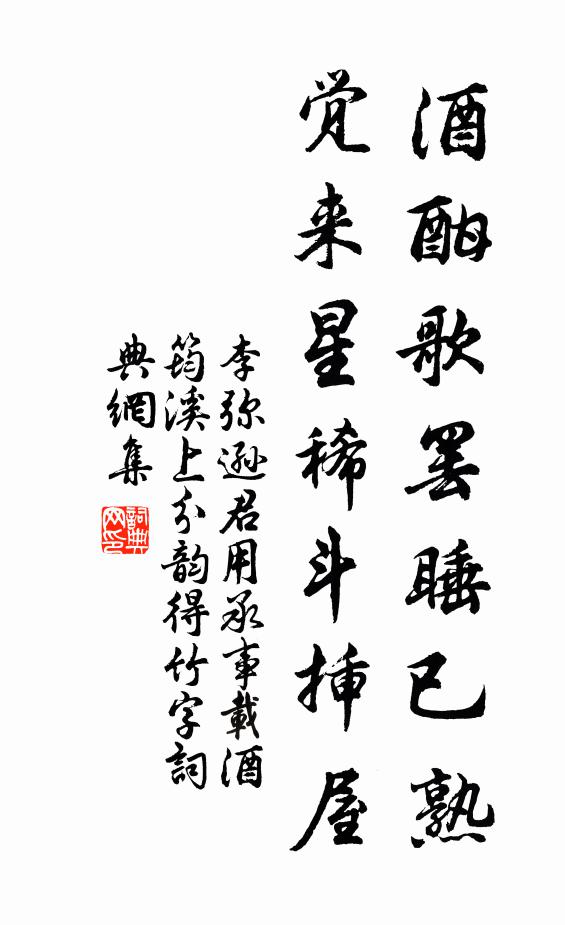 酒酣歌罢睡已熟
觉来星稀斗插屋
李弥逊君用承事載酒
筠溪上分韵得竹字詞
典網集
詞典网印